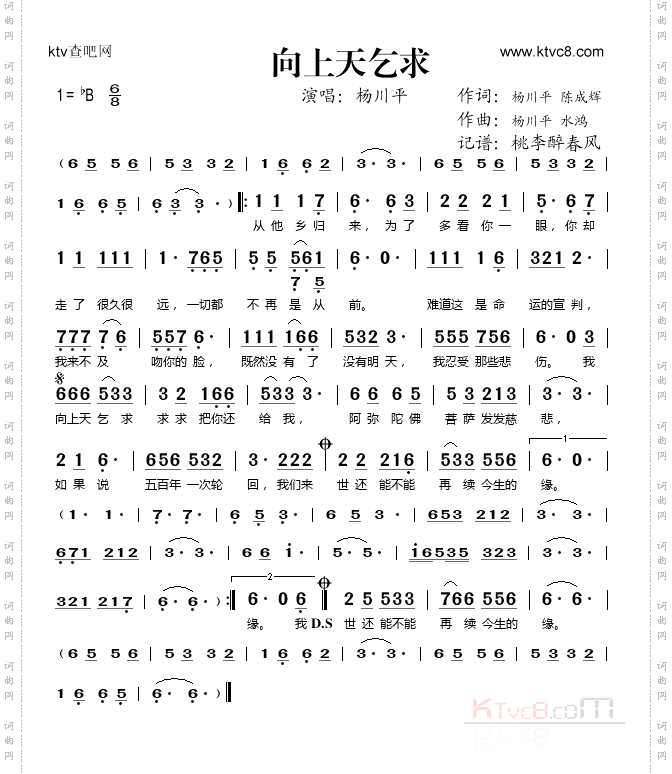 ktv查吧网
向上天乞求
www.ktvc8.com
1= ♭B 6/8
演唱：杨川平
作词：杨川平 陈成辉
作曲：杨川平 水鸿
记谱：桃李醉春风
（ 6 5 5 6 | 5 3 3 2 | 1 6 6 2 | 3· 3· | 6 5 5 6 | 5 3 3 2 |
1 6 6 5 | 6 3 3· ）‖: 1 1 1 7 | 6· 6 3 | 2 2 2 1 | 5· 6 7 |
从他 乡归 来，为了 多看 你一 眼，你却
1 1 111 | 1· 765 | 5 5 561 | 6· 0· | 111 1 6 | 321 2· |
7 5
走了 很久很 远，一切都 不再 是 从 前。 难道这 是命 运的宣判，
777 7 6 | 557 6· | 111 166 | 532 3· | 555 756 | 6· 0 3 |
我来不 及 吻你的 脸， 既然没 有 了 没有明 天， 我忍受 那些悲 伤。 我
666 533 | 3 2 166 | 533 3· | 6 6 6· | 5 3 213 | 3· 3· |
向上天 乞 求 求 求 把你还 给 我， 阿 弥 陀佛 菩 萨 发发慈 悲，
2 1 6· | 656 532 | 3· 222 | 2 2 216 | 533 556 | 1 6· 0· |
如 果 说 五百年 一次轮 回，我们来 世 还 能不能 再 续 今生的 缘。
（ 1· 1· | 7· 7· | 6 5 3· | 6 5 3· | 653 212 | 3· 3· |
671 212 | 3· 3· | 6 6 i· | 5· 5· | i6535 323 | 3· 3· |
321 217 | 6· 6· ）:‖ 2 6· 0 6 ‖ 2 5 533 | 766 556 | 6· 6· |
缘。 我 D.S 世 还 能不能 再 续 今生的 缘。
（ 6 5 5 6 | 5 3 3 2 | 1 6 6 2 | 3· 3· | 6 5 5 6 | 5 3 3 2 |
1 6 6 5 | 6· 6· ）‖
KTvc8.com
词曲网 词曲网 词曲网 词曲网 词曲网 词曲网 词曲网 词曲网 词曲网 词曲网 词曲网 词曲网 词曲网
词曲网 词曲网 词曲网 词曲网 词曲网 词曲网 词曲网 词曲网 词曲网 词曲网 词曲网 词曲网 词曲网